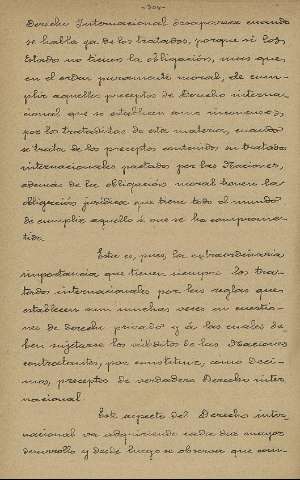 -304-
Derecho Internacional desaparece cuando
se habla ya de los tratados, porque si los
Estado no tienen la obligación, mas que
en el orden puramente moral, de cum-
plir aquellos preceptos de Derecho interna-
cional que se establecen
por los tratadistas de esta materia, cuando
se trata de los preceptos contenidos en tratados
internacionales pactados por las Naciones,
además de la obligación moral tienen la
obligación jurídica que tiene todo el mundo
de cumplir aquello á que se ha comprome-
tido.
Esta es, pues, la extraordinaria
importancia que tienen siempre los tra-
tados internacionales por las reglas que
establecen aun muchas veces en cuestio-
nes de derecho privado y á las cuales de-
ben sujetarse los súbditos de las Naciones
contratantes, por constituir, como deci-
mos, preceptos de verdadero Derecho inter-
nacional.
Este aspecto del Derecho inter-
nacional va adquiriendo cada dia mayor
desarrollo y desde luego se observa que com-